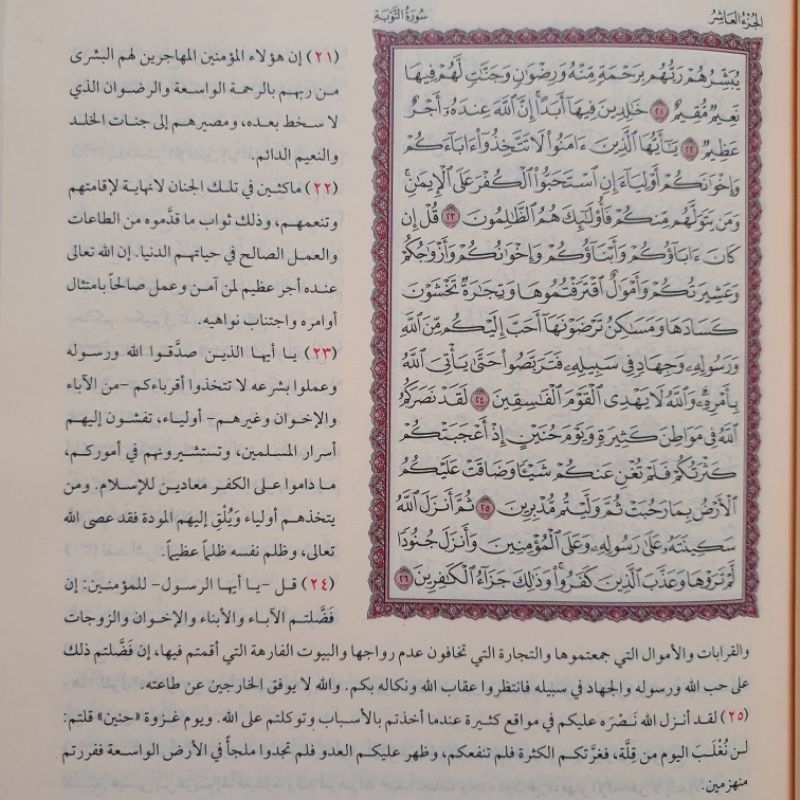 الجزء العاشر
سورة التوبة
يُبَشِّرُهُمْ رَبُّهُم بِرَحْمَةٍ مِّنْهُ وَرِضْوَٰنٍ وَجَنَّٰتٍ لَّهُمْ فِيهَا
نَعِيمٌ مُّقِيمٌ ٢١ خَٰلِدِينَ فِيهَآ أَبَدًا ۚ إِنَّ ٱللَّهَ عِندَهُۥٓ أَجْرٌ
عَظِيمٌ ٢٢ يَٰٓأَيُّهَا ٱلَّذِينَ ءَامَنُوا۟ لَا تَتَّخِذُوٓا۟ ءَابَآءَكُمْ
وَإِخْوَٰنَكُمْ أَوْلِيَآءَ إِنِ ٱسْتَحَبُّوا۟ ٱلْكُفْرَ عَلَى ٱلْإِيمَٰنِ ۚ
وَمَن يَتَوَلَّهُم مِّنكُمْ فَأُو۟لَٰٓئِكَ هُمُ ٱلظَّٰلِمُونَ ٢٣ قُلْ إِن
كَانَ ءَابَآؤُكُمْ وَأَبْنَآؤُكُمْ وَإِخْوَٰنُكُمْ وَأَزْوَٰجُكُمْ
وَعَشِيرَتُكُمْ وَأَمْوَٰلٌ ٱقْتَرَفْتُمُوهَا وَتِجَٰرَةٌ تَخْشَوْنَ
كَسَادَهَا وَمَسَٰكِنُ تَرْضَوْنَهَآ أَحَبَّ إِلَيْكُم مِّنَ ٱللَّهِ
وَرَسُولِهِۦ وَجِهَادٍ فِى سَبِيلِهِۦ فَتَرَبَّصُوا۟ حَتَّىٰ يَأْتِىَ ٱللَّهُ
بِأَمْرِهِۦ ۗ وَٱللَّهُ لَا يَهْدِى ٱلْقَوْمَ ٱلْفَٰسِقِينَ ٢٤ لَقَدْ نَصَرَكُمُ
ٱللَّهُ فِى مَوَاطِنَ كَثِيرَةٍ ۙ وَيَوْمَ حُنَيْنٍ ۙ إِذْ أَعْجَبَتْكُمْ
كَثْرَتُكُمْ فَلَمْ تُغْنِ عَنكُمْ شَيْـًٔا وَضَاقَتْ عَلَيْكُمُ
ٱلْأَرْضُ بِمَا رَحُبَتْ ثُمَّ وَلَّيْتُم مُّدْبِرِينَ ٢٥ ثُمَّ أَنزَلَ ٱللَّهُ
سَكِينَتَهُۥ عَلَىٰ رَسُولِهِۦ وَعَلَى ٱلْمُؤْمِنِينَ وَأَنزَلَ جُنُودًا
لَّمْ تَرَوْهَا وَعَذَّبَ ٱلَّذِينَ كَفَرُوا۟ ۚ وَذَٰلِكَ جَزَآءُ ٱلْكَٰفِرِينَ ٢٦
(٢١) إن هؤلاء المؤمنين المهاجرين لهم البشرى
من ربهم بالرحمة الواسعة والرضوان الذي
لا سخط بعده، ومصيرهم إلى جنات الخلد
والنعيم الدائم.
(٢٢) ماكثين في تلك الجنان لا نهاية لإقامتهم
وتنعمهم، وذلك ثواب ما قدَّموه من الطاعات
والعمل الصالح في حياتهم الدنيا. إن الله تعالى
عنده أجر عظيم لمن آمن وعمل صالحاً بامتثال
أوامره واجتناب نواهيه.
(٢٣) يا أيها الذين صدَّقوا الله ورسوله
وعملوا بشرعه لا تتخذوا أقرباءكم -من الآباء
والإخوان وغيرهم- أولياء، تفشون إليهم
أسرار المسلمين، وتستشيرونهم في أموركم،
ما داموا على الكفر معادين للإسلام. ومن
يتخذهم أولياء ويُلْقِ إليهم المودة فقد عصى الله
تعالى، وظلم نفسه ظلماً عظيماً.
(٢٤) قل -يا أيها الرسول- للمؤمنين: إن
فَضَّلتم الآباء والأبناء والإخوان والزوجات
والقرابات والأموال التي جمعتموها والتجارة التي تخافون عدم رواجها والبيوت الفارهة التي أقمتم فيها، إن فَضَّلتم ذلك
على حب الله ورسوله والجهاد في سبيله فانتظروا عقاب الله ونكاله بكم. والله لا يوفق الخارجين عن طاعته.
(٢٥) لقد أنزل الله نَصْرَه عليكم في مواقع كثيرة عندما أخذتم بالأسباب وتوكلتم على الله. ويوم غزوة «حنين» قلتم:
لن نُغْلَبَ اليوم من قِلَّة، فغرَّتكم الكثرة فلم تنفعكم، وظهر عليكم العدو فلم تجدوا ملجأً في الأرض الواسعة ففررتم
منهزمين.